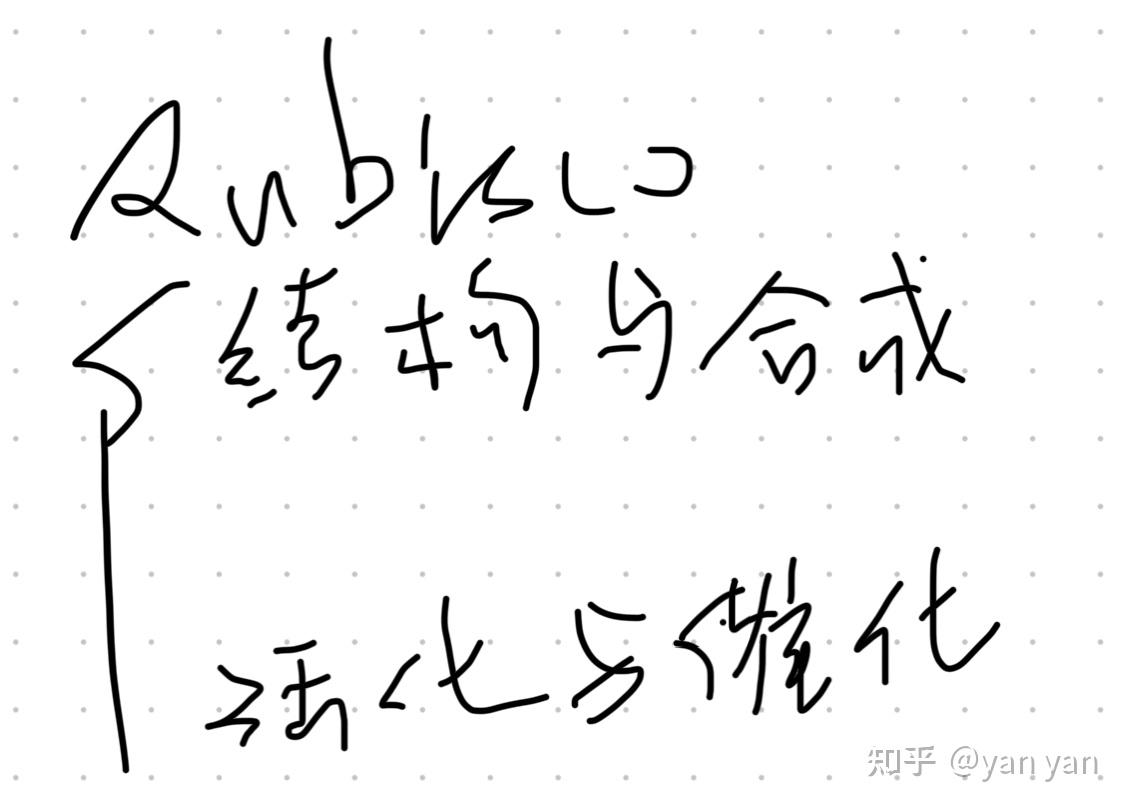 Rubisco
结构与合成
活化与催化
知乎 @yan yan